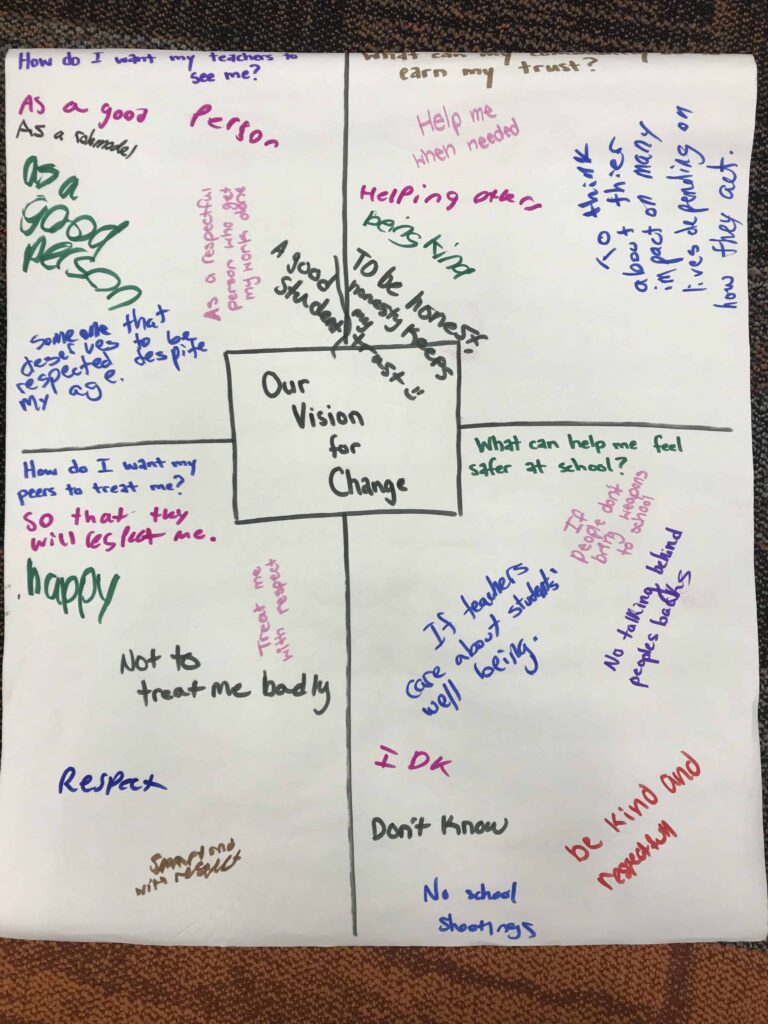 How do I want my teachers to
see me?
As a good
Person
As a rolemodel
as a
good
person
As a respectful
person who get
my work done
A good
student
Someone that
deserves to be
respected despite
my age.
earn my trust?
Help me
when needed
Helping others
being kind
To think
about thier
impact on many
lives depending on
how they act.
To be honest.
honesty keeps
my
trust
Our
Vision
for
Change
How do I want my
peers to treat me?
So that they
will respect me.
happy
Treat me
with respect
Not to
treat me badly
Respect
with respect
What can help me feel
safer at school?
If
People dont
bring weapons
to school
If teachers
care about students'
well being.
No talking behind
peoples backs
I DK
Don't Know
be kind and
respectfull
No school
shootings